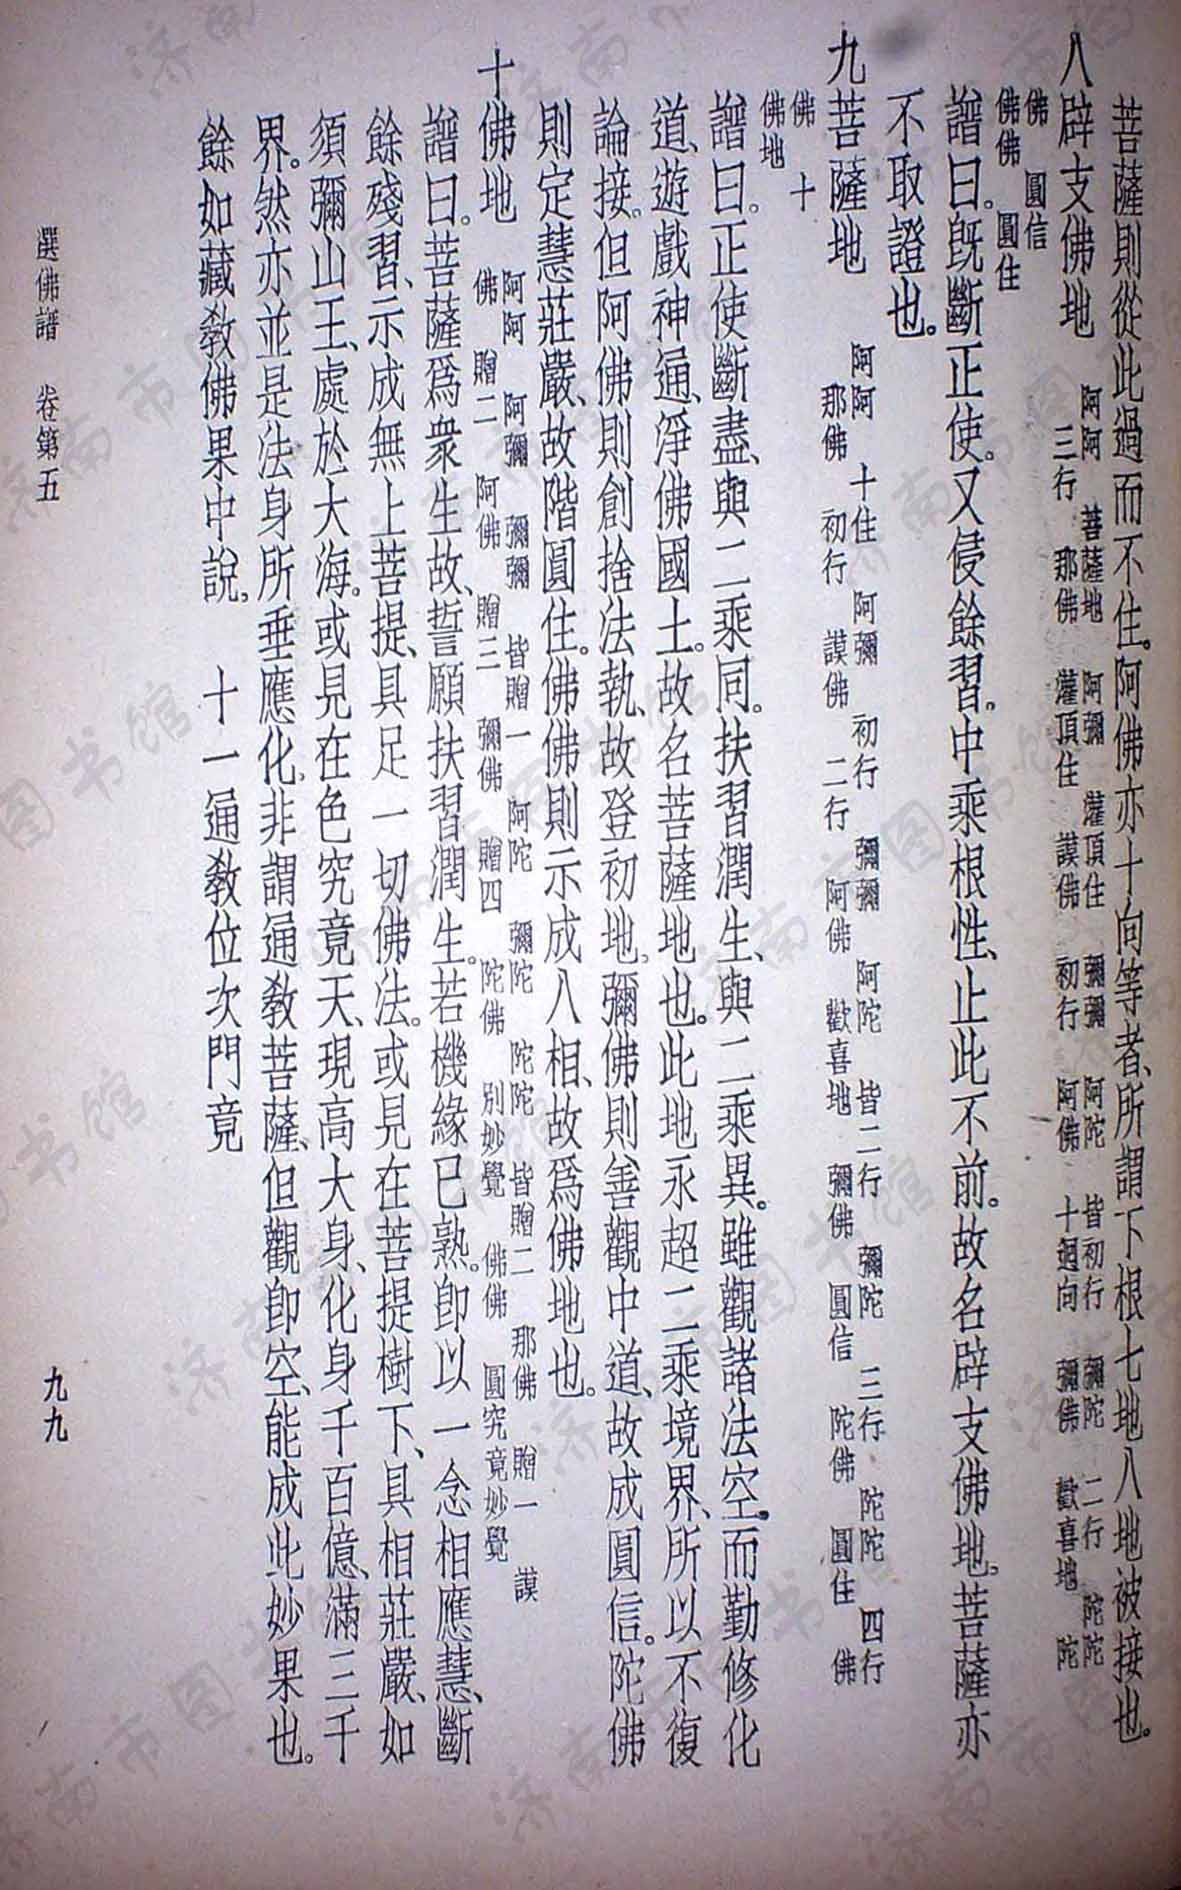 菩薩則從此過而不住。阿佛亦十向等者、所謂下根七地八地被接也。
八 辟支佛地 阿阿 菩薩地 阿彌 灌頂住 彌彌 阿陀 皆初行 彌陀 二行 陀陀
三行 那佛 灌頂住 謨佛 初行 阿佛 十迴向 彌佛 歡喜地 陀
佛 圓信
佛佛 圓住
譜曰。旣斷正使。又侵餘習。中乘根性、止此不前。故名辟支佛地。菩薩亦
不取證也。
九 菩薩地 阿阿 十住 阿彌 初行 彌彌 阿陀 皆二行 彌陀 三行 陀陀 四行
那佛 初行 謨佛 二行 阿佛 歡喜地 彌佛 圓信 陀佛 圓住 佛
佛 十
佛地
譜曰。正使斷盡、與二乘同。扶習潤生、與二乘異。雖觀諸法空。而勤修化
道、遊戲神通、淨佛國土。故名菩薩地也。此地永超二乘境界、所以不復
論接。但阿佛則創捨法執、故登初地。彌佛則善觀中道、故成圓信。陀佛
則定慧莊嚴、故階圓住。佛佛則示成八相、故爲佛地也。
十 佛地 阿阿 阿彌 彌彌 皆贈一 阿陀 彌陀 陀陀 皆贈二 那佛 贈一 謨
佛 贈二 阿佛 贈三 彌佛 贈四 陀佛 別妙覺 佛佛 圓究竟妙覺
譜曰。菩薩爲衆生故、誓願扶習潤生。若機緣已熟。卽以一念相應慧、斷
餘殘習、示成無上菩提、具足一切佛法。或見在菩提樹下、具相莊嚴、如
須彌山王、處於大海。或見在色究竟天、現高大身、化身千百億、滿三千
界。然亦並是法身所垂應化、非謂通教菩薩、但觀卽空、能成此妙果也。
餘如藏教佛果中說。 十一通教位次門竟
選佛譜 卷第五 九九